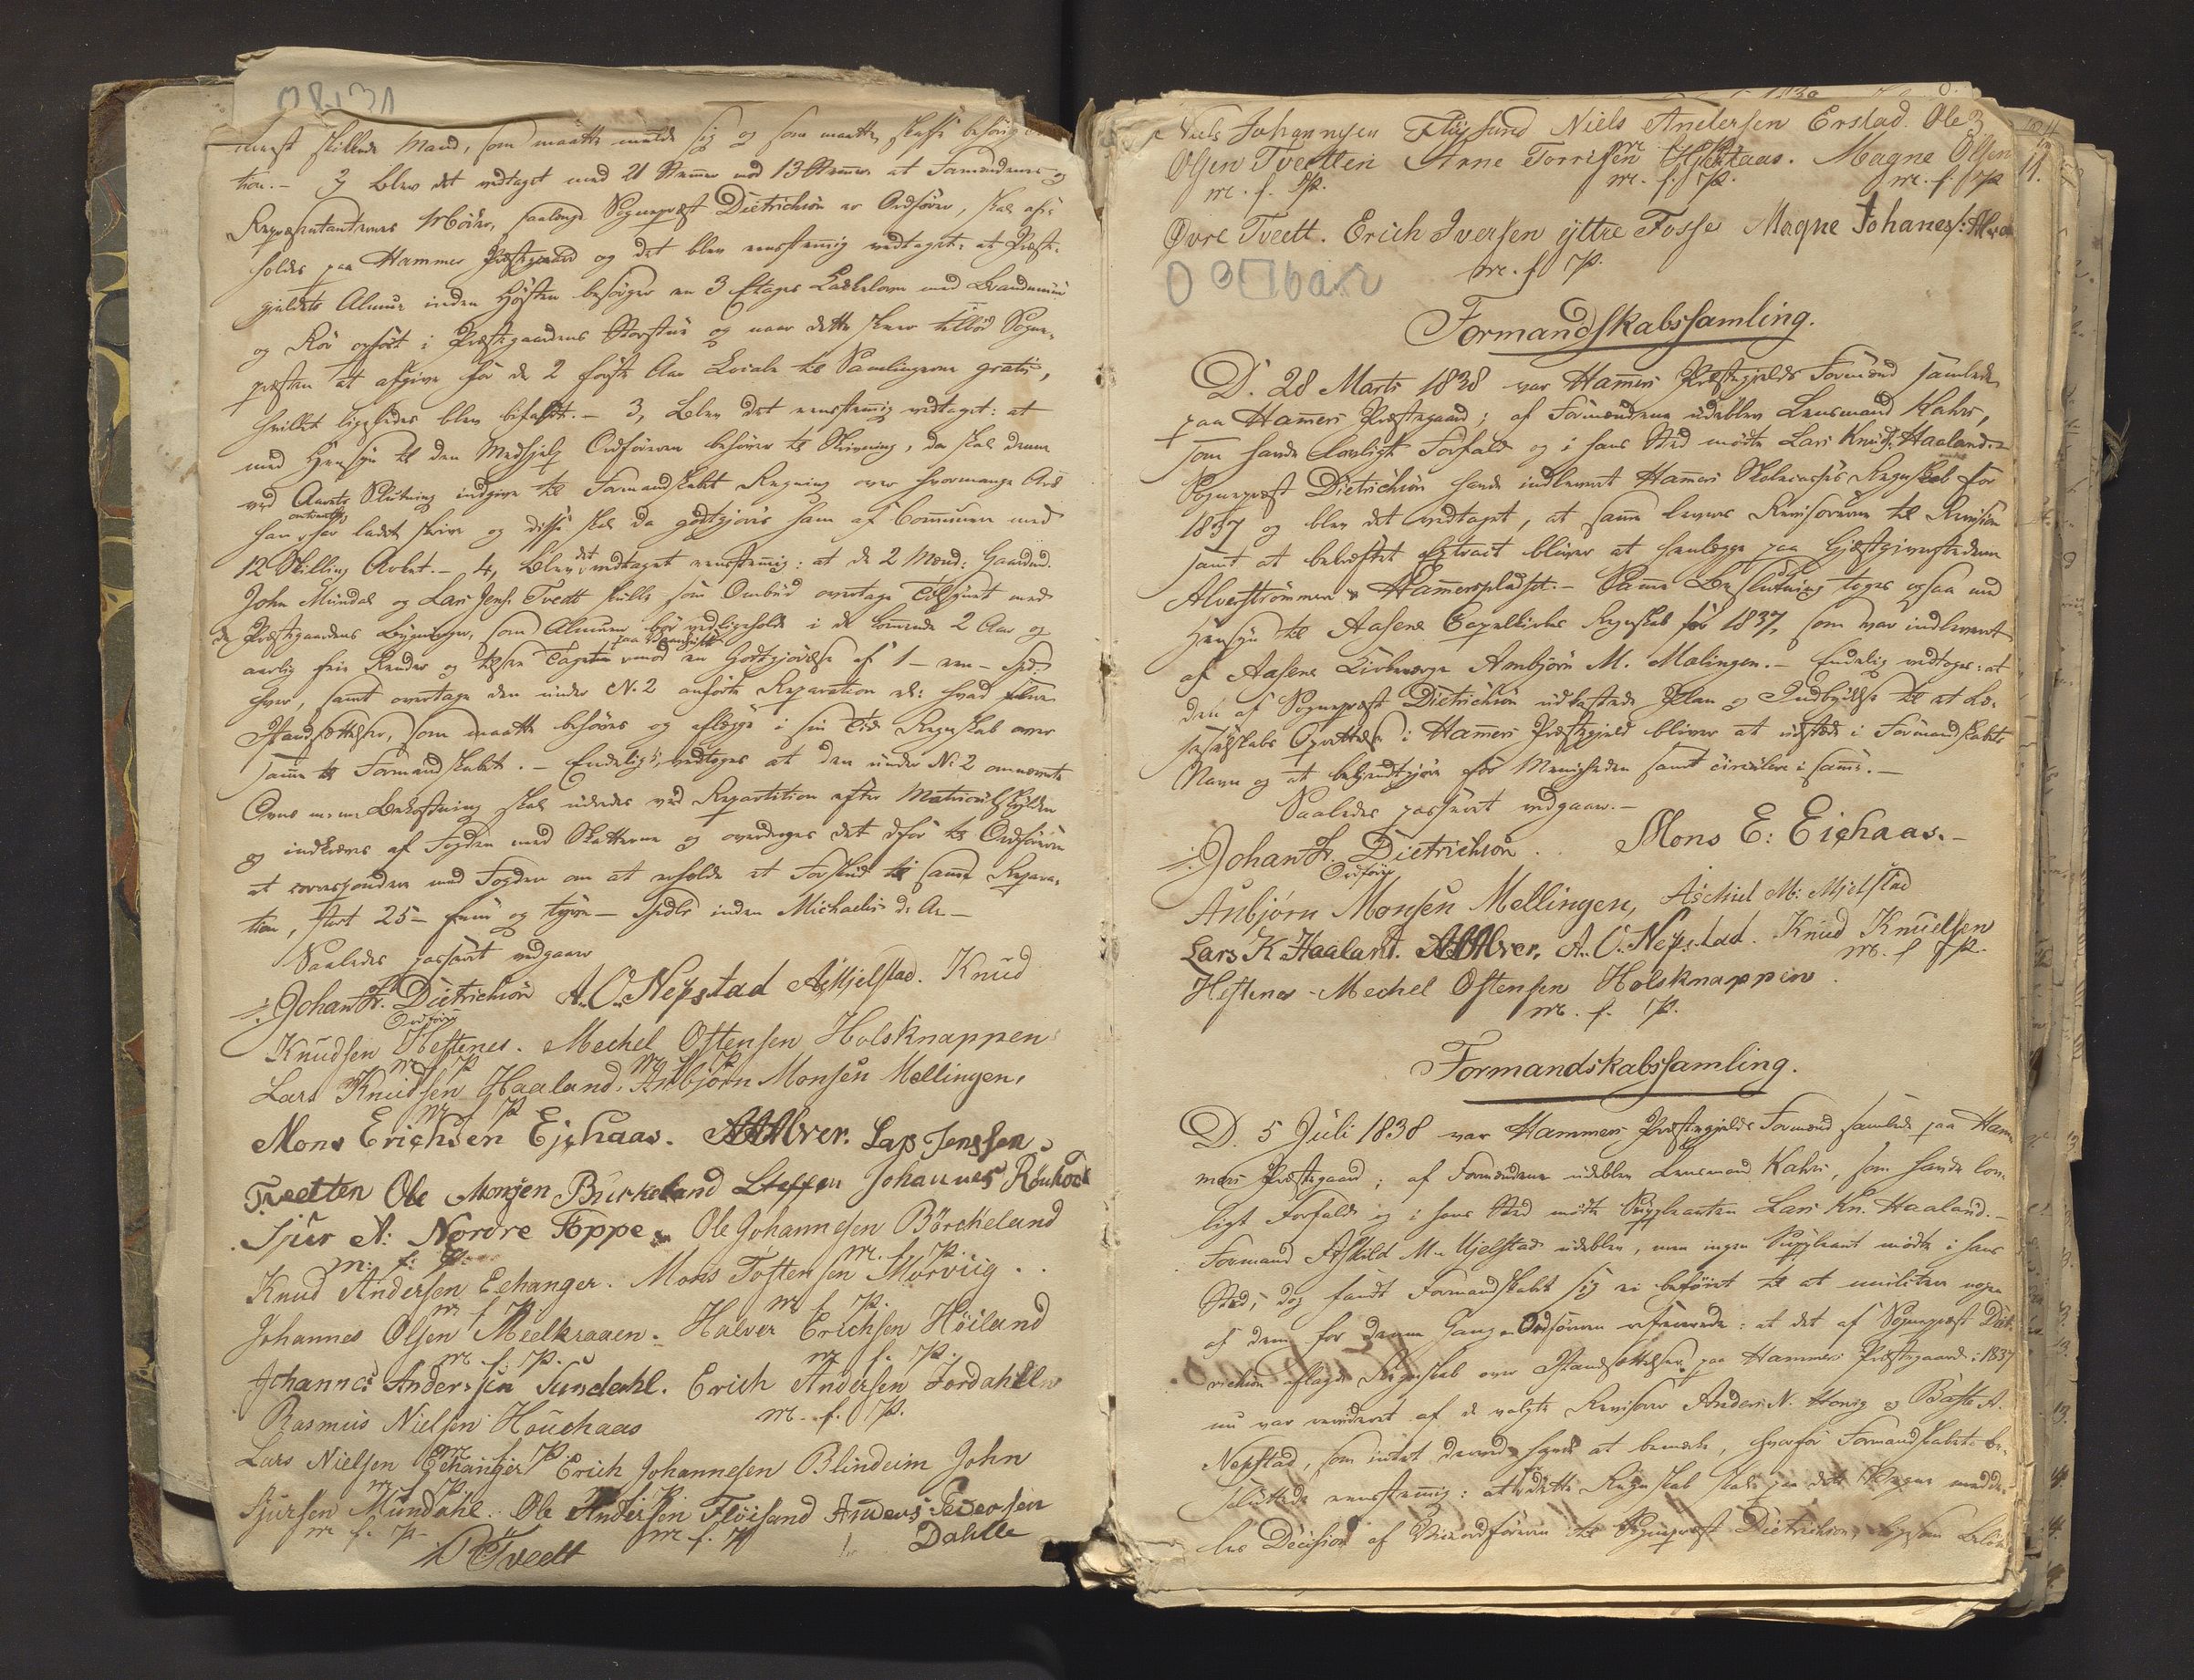 mest skillede Mand, som maatte melde sig og som maatte skaffe
tion. – 2, Blev det vedtaget med 21 Stemmer mod 13 Stemmer at Formændenes og
Repræsentanternes Møder, saalænge Sognepræst Dietrichson er Ordfører, skal
holdes paa Hammer Præstegaard og det blev eenstemmig vedtaget: at Præste-
gjeldets Almue inden Høsten besørger en 3 Etages Kakkelovn med Brandmuur
og Rør opsat i Præstegaardens Storstue og naar dette skeer tilbød Sogne-
præsten at afgive for de 2 første Aar Locale til Samlingerne gratis,
hvilket ligeledes blev bifaldt. – 3, Blev det eenstemmig vedtaget: at
med Hensyn til den Medhjelp Ordføreren behøver til Skrivning, da skal denne
ved Aarets Slutning indgive til Formandskabet Regning over hvormange Ark
han har ladet skrive og disse skal da godtgjøres ham af Communen med
12 Skilling Arket. – 4, Blev det vedtaget eenstemmig: at de 2 Mænd: Gaardmd.
John Mundal og Lars Jens. Tvedt skulle som Ombud overtage Tilsynet med
de Præstegaardens Bygninger, som Almuen bør vedligeholde i de kommende 2 Aar og
aarlig feie Render og efterse Tagene mod en Godtgjørelse af 1 – een – Spd
hver, samt overtage den under No 2 anførte Reparation
Istandsættelser, som maatte behøves og aflægge i sin Tid Regnskab over
samme til Formandskabet. – Endelig vedtoges at den under No 2 omnævnte
Ovns m. m. Bekostning skal udredes ved Repartition efter Matriculskylden
og indkræves af Fogden med Skatterne og overdroges det dfor til Ordføreren
at correspondere med Fogden om at erholde et Forskud til samme Repara-
tion, stort 25 – fem og tyve – Spdlr inden Michaelis d. A. –
Saaledes passeret vedgaaer
Johan Fr. Dietrichson A. O. Nepstad A. Mjelstad. Knud
Ordfører
Knudsen Heftenes. Mechel Ostensen Holsknappen
m. f. P. m. f. P.
Lars Knudsen Haaland, Anbjørn Monsen Mellingen,
m. f. P.
Mons Erichsen Ejchaas. AAAlver. Lars Jenssen
Tveetten Ole Monsen Burkeland Steffen Johannes
Sjur A: Nordre Toppe Ole Johannesen Börckeland
m: f: P. m. f. P.
Knud Andersen Echanger. Mons Tostensen Morviig.
m f P. m f P.
Johannes Olsen Meelkraaen. Halver Erichsen Höiland
m. f. P. m f. P.
Johannes Andersen Sundahl. Erich Andersen Jordahlln
Rasmus Nielsen Houchaas m. f. P.
m. f. P.
Lars Nielsen Echanger Erich Johannesen Blindeim John
m f P.
Sjursen Mundahl. Ole Andersen Floisand Anders Pedersen
m f. P. m f. P. Dahlle
Tvedt
Niels Johannesen Fløjsand Niels Andersen Erstad. Ole
Olsen Tvetten Arne Torrisen Hjertaas. Magne Olsen
m. f. P. m. f. P. m. f. P. 11.
Øvre Tveett. Erich Iversen ÿttre Fosse Magne Johanes:
m. f. P.
Formandskabssamling.
D. 28 Marts 1838 var Hammers Præstegjelds Formænd samlede
paa Hammers Præstegaard; af Formændene udeblev Lensmand Kahrs,
som havde lovligt Forfald og i hans Sted mødte Lars Knuds. Haaland. –
Sognepræst Dietrichson havde indleveret Hammers Skolecasses Regnskab for
1837 og blev det vedtaget, at samme leveres Revisorerne til Revision
samt at bekræftet Extract bliver at henlægge paa Gjæstgiverstederne
Alverstrømmen & Hammerspladset. – Samme Beslutning toges ogsaa med
Hensyn til Aasene Capelkirkes Regnskab for 1837, som var indleveret
af Aasene Kirkeværge Anbjørn M. Mælingen. – Endelig vedtoges: at
den af Sognepræst Dietrichson udkastede Plan og Indbydelse til et Læ-
seselskabs Oprettelse i Hammers Præstegjeld bliver at udstede i Formandskabets
Navn og at bekjendtgjøre for Menigheden samt circulere i samme. –
Saaledes passeret vedgaaer. –
Johan Fr. Dietrichson Mons E: Eichaas. –
Ordfører
Anbjørn Monsen Mellingen, Aschiul M: Mjelstad
Lars K Haaland. AAAlver. A. O. Nepstad. Knud Knudsen
m. f P.
Heftenes – Mechel Ostensen Holsknappen
m. f. P.
Formandskabssamling.
D. 5 Juli 1838 var Hammers Præstegjelds Formænd samlede paa Ham-
mers Præstegaard; af Formændene udeblev Lensmand Kahrs, som havde lov-
ligt Forfald og i hans Sted mødte Suppleanten Lars Kn. Haaland. –
Formand Askild M. Mjelstad udeblev, men ingen Suppleant mødte i hans
Sted; dog fandt Formandskabet sig ei beføiet til at mulctere nogen
af dem for denne Gang. Ordføreren refererede: at det af Sognepræst Diet-
richson aflagde Regnskab over Istandsættelser paa Hammers Præstegaard i 1837
nu var revideret af de valgte Revisorer Anders N. Howig &
Nepstad, som intet derved havde at bemærke, hvorfor Formandskabet be-
sluttede eenstemmig: at dette Regnskab skal paa det meddel-
les Decision af Viceordføreren til Sognepræst Dietrichson, ligesom